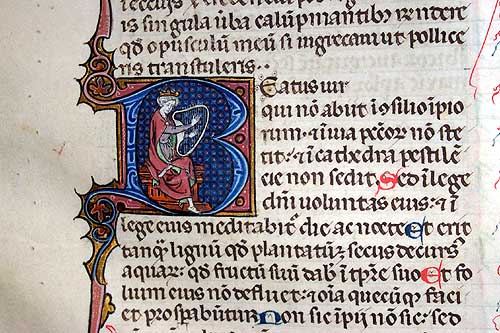 is singula ūba calūpniantibꝰ rñdere
qđ opusculū meū si in grecam ut pollice
ris transtuleris..
Beatus uir
qui nō abiit ī ꝯsilio īpio
rum· ⁊ ī uia pctōꝝ nō ste
tit: ⁊ ī cathedra pestilē
cie non sedit. Sed ī lege
dñi uoluntas eius: ⁊ ī
lege eius meditabitᷣ die ac nocte Et erit
tanqͣ lignū qđ plantatū ē secus decursꝰ
aquaꝝ: qđ fructū suū dabit ī tp̄re suo Et fo
lium eius nō defluet: ⁊ oīa quecūqꝫ faci
et prosꝑabūtur Non sic īpii nō sic: sed